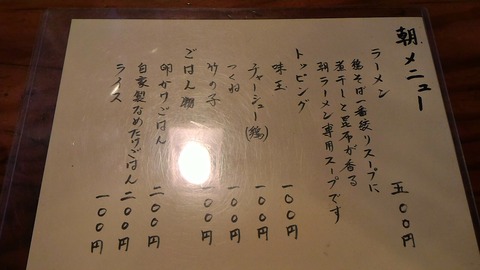 朝メニュー
ラーメン 五〇〇円
鶏そば一番絞りスープに
煮干しと昆布が香る
朝ラーメン専用スープです
トッピング
味玉 一〇〇円
チャーシュー(鶏) 一〇〇円
つくね 一〇〇円
竹の子 一〇〇円
ごはん類
卵かけごはん 二〇〇円
自家製なめたけごはん 二〇〇円
ライス 一〇〇円